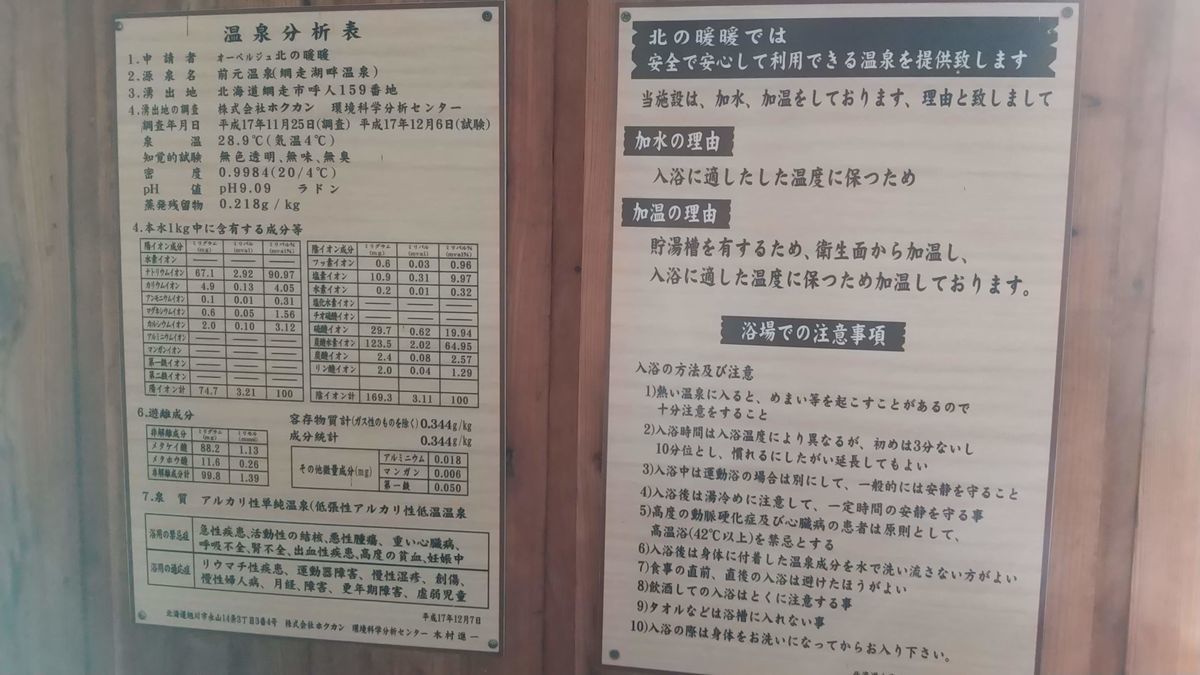 温泉分析表
1.申請者 オーベルジュ北の暖暖
2.源泉名 前元温泉(網走湖畔温泉)
3.湧出地 北海道網走市呼人159番地
4.湧出地の調査 株式会社ホクカン 環境科学分析センター
調査年月日 平成17年11月25日(調査) 平成17年12月6日(試験)
泉温 28.9℃(気温4℃)
知覚的試験 無色透明、無味、無臭
密度 0.9984(20/4℃)
pH値 pH9.09 ラドン
蒸発残留物 0.218g/kg
4.本水1kg中に含有する成分等
陽イオン成分 ミリグラム(mg) ミリバル(mval) ミリバル%(mval%)
水素イオン — — —
ナトリウムイオン 67.1 2.92 90.97
カリウムイオン 4.9 0.13 4.05
アンモニウムイオン 0.1 0.01 0.31
マグネシウムイオン 0.6 0.05 1.56
カルシウムイオン 2.0 0.10 3.12
アルミニウムイオン — — —
マンガンイオン — — —
第一鉄イオン — — —
第二鉄イオン — — —
陽イオン計 74.7 3.21 100
陰イオン成分 ミリグラム(mg) ミリバル(mval) ミリバル%(mval%)
フッ素イオン 0.6 0.03 0.96
塩素イオン 10.9 0.31 9.97
水素イオン 0.2 0.01 0.32
塩化水素イオン — — —
チオ硫酸イオン — — —
硫酸イオン 29.7 0.62 19.94
炭酸水素イオン 123.5 2.02 64.95
炭酸イオン 2.4 0.08 2.57
リン酸イオン 2.0 0.04 1.29
陰イオン計 169.3 3.11 100
6.遊離成分
非解離成分 ミリグラム(mg) ミリモル(mmol)
メタケイ酸 88.2 1.13
メタホウ酸 11.6 0.26
非解離成分計 99.8 1.39
容存物質計(ガス性のものを除く)0.344g/kg
成分統計 0.344g/kg
その他微量成分(mg)
アルミニウム 0.018
マンガン 0.006
第一鉄 0.050
7.泉質 アルカリ性単純温泉(低張性アルカリ性低温温泉
浴用の禁忌症
急性疾患、活動性の結核、悪性腫瘍、重い心臓病、
呼吸不全、腎不全、出血性疾患、高度の貧血、妊娠中
浴用の適応症
リウマチ性疾患、運動器障害、慢性湿疹、創傷、
慢性婦人病、月経、障害、更年期障害、虚弱児童
平成17年12月7日
北海道旭川市永山14条3丁目3番4号 株式会社ホクカン 環境科学分析センター 木村進一
北の暖暖では
安全で安心して利用できる温泉を提供致します
当施設は、加水、加温をしております、理由と致しまして
加水の理由
入浴に適したした温度に保つため
加温の理由
貯湯槽を有するため、衛生面から加温し、
入浴に適した温度に保つため加温しております。
浴場での注意事項
入浴の方法及び注意
1)熱い温泉に入ると、めまい等を起こすことがあるので
十分注意をすること
2)入浴時間は入浴温度により異なるが、初めは3分ないし
10分位とし、慣れるにしたがい延長してもよい
3)入浴中は運動浴の場合は別にして、一般的には安静を守ること
4)入浴後は湯冷めに注意して、一定時間の安静を守る事
5)高度の動脈硬化症及び心臓病の患者は原則として、
高温浴(42℃以上)を禁忌とする
6)入浴後は身体に付着した温泉成分を水で洗い流さない方がよい
7)食事の直前、直後の入浴は避けたほうがよい
8)飲酒しての入浴はとくに注意する事
9)タオルなどは浴槽に入れない事
10)入浴の際は身体をお洗いになってからお入り下さい。